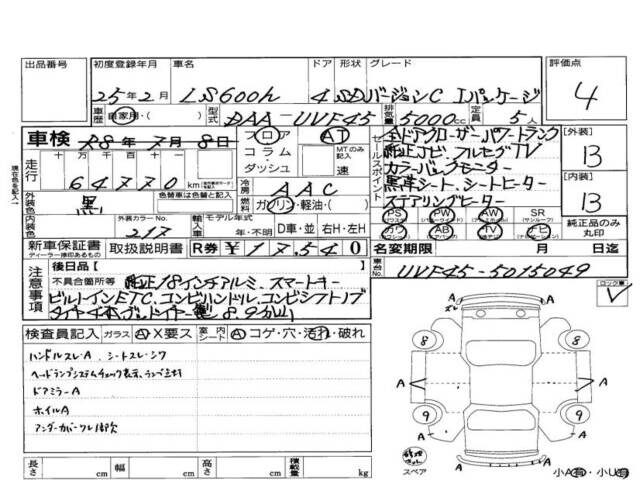 出品番号 初度登録年月 車名 ドア 形状 グレード 評価点
25年2月 LS600h 4 SD バージョンC Iパッケージ 4
車歴 自家用・( ) 型式 DAA-UVF45 排気量 5000cc 定員 5人
車検 28年7月8日 フロア AT セールスポイント 全ドアクローザー パワートランク [外装]
走行 十万 万 千 百 十 コラム MTのみ記入 純正ナビ、フルセグTV 13
64770km ダッシュ 速 カラーバックモニター
現在色を記入→ 冷房 AAC 黒革シート、シートヒーター [内装]
外装色 黒 色替車は色替と記入 燃料 ガソリン・軽油・( ) ステアリングヒーター 13
内装色 外装カラーNo. 217 輸入車 モデル年式 年・不明 D車・並 右H・左H PS PW AW SR(サンルーフ) 純正品のみ丸印
カワ AB TV ナビ
新車保証書 ディーラー捺印あるもの 取扱説明書 R券 ¥17,540 名変期限 月 日迄
注意事項 後日品[ ] 車台No. UVF45-5015049
不具合箇所等 純正18インチアルミ、スマートキー ロック有
ビルトインETC、コンビハンドル、コンビシフトノブ
検査員記入 ガラス A X要ス 室内 シート A コゲ・穴・汚れ・破れ
ハンドルスレA、シートスレシワ
ヘッドランプシステムチェック表示、
ドアミラーA
ホイルA
アンダーカバーワレ1部欠
A A
ズレ
8 8
A A
9 9
A A
スペア
長さ cm 幅 cm 高さ cm 積載量 kg 小A有・小U有